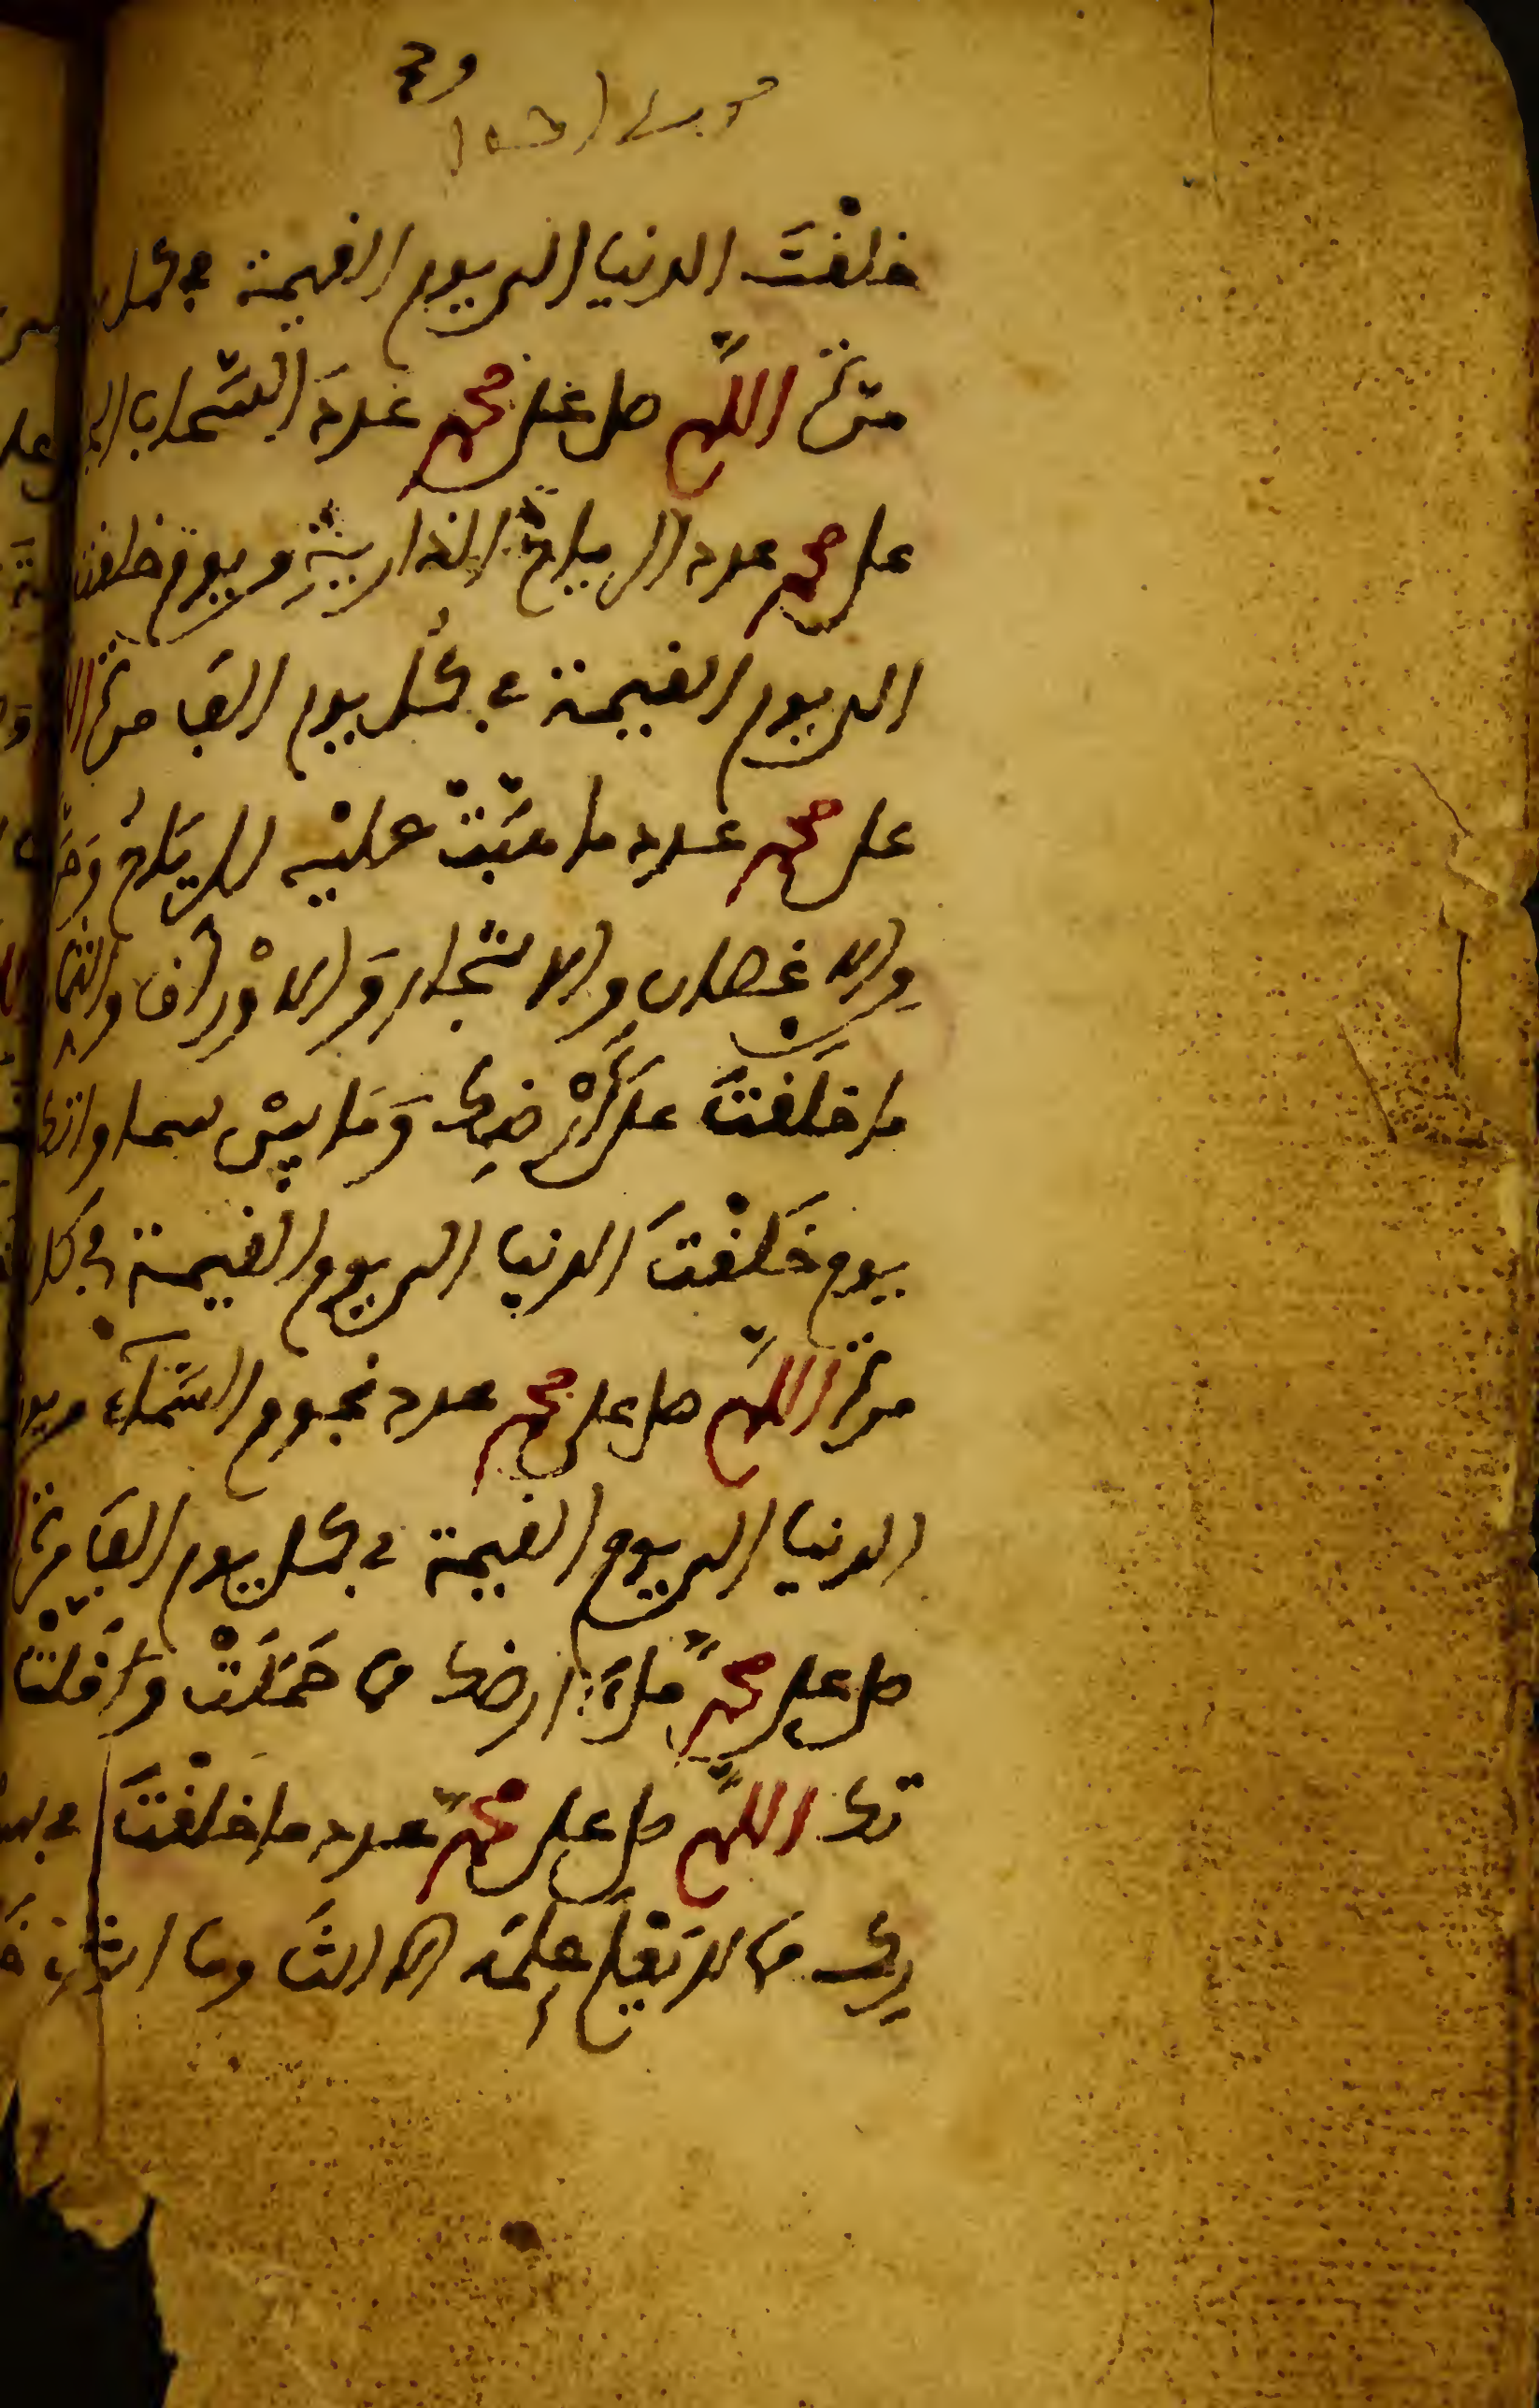 خلقتَ الدنيا الى يوم القيمة في كل
مرة اللهم صل على محمد عدد السَّحاب
على محمد عدد الرياح الذارية ويوم خلقت
الى يوم القيمة في كُل يوم الف مرة
على محمد عدد ما هبَّتْ عليْه الرياحُ
والاغصان والاشجار وَالاوْراق والثما
ما خلَقتَ على أرْضِك وَمَا بيْن سماواتك
يوم خَلقْتَ الدنيا الى يوم القيمة في كل
مرة اللهم صل على محمد عدد نجوم السَّمآء ويوم
الدنيا الى يوم القيمة في كل يوم الف مرة
صل على محمد ملءَ ارضك مما حَمَلَتْ وَاقلت
تك اللهم صل على محمد عدد ما خلقْتَ في
مَا لا يَعْلم عِلمَه الا انتَ وما انت